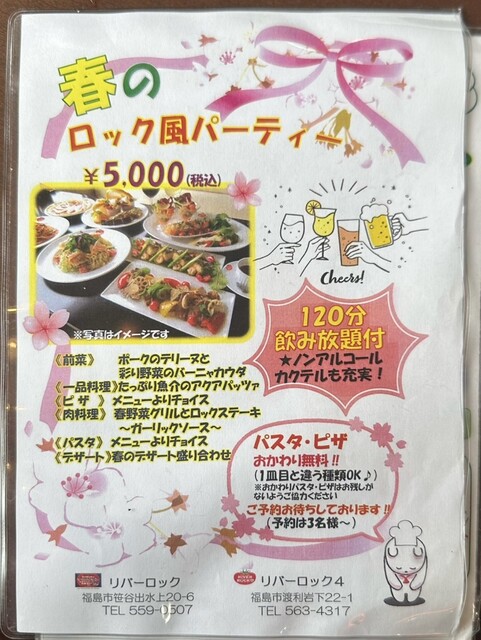 春の
ロック風パーティー
¥5,000(税込)
※写真はイメージです
Cheers!
120分
飲み放題付
★ノンアルコール
カクテルも充実！
《前菜》 ポークのテリーヌと
彩り野菜のバーニャカウダ
《一品料理》たっぷり魚介のアクアパッツァ
《ピザ》 メニューよりチョイス
《肉料理》 春野菜グリルとロックステーキ
～ガーリックソース～
《パスタ》 メニューよりチョイス
《デザート》春のデザート盛り合わせ
パスタ・ピザ
おかわり無料!!
(1皿目と違う種類OK♪)
※おかわりパスタ・ピザはお残しが
ないようご協力ください
ご予約お待ちしております!!
(予約は3名様～)
リバーロック
福島市笹谷出水上20-6
TEL 559-0507
リバーロック4
福島市渡利岩下22-1
TEL 563-4317